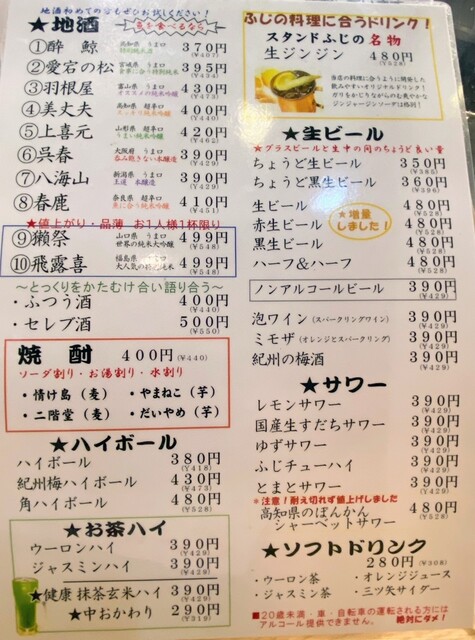 地酒初めての方もぜひお試しください！
★地酒 魚を食べるなら
①酔鯨 高知県 うま口 370円 (¥407)
②愛宕の松 宮城県 うま口 食事に合う特別純米 395円 (¥434)
③羽根屋 富山県 うま口 オススメの純米吟醸 430円 (¥473)
④美丈夫 高知県 超辛口 純米吟醸 400円
⑤上喜元 山形県 超辛口 純米吟醸 420円 (¥462)
⑥呉春 大阪府 うま口 呑み飽きない本醸造 390円 (¥429)
⑦八海山 新潟県 うま口 王道 本醸造 390円 (¥429)
⑧春鹿 奈良県 超辛口 魚に合う純米吟醸 410円 (¥451)
★値上がり・品薄 お1人様1杯限り
⑨獺祭 山口県 うま口 世界の純米大吟醸 499円 (¥548)
⑩飛露喜 福島県 うま口 大人気の特別純米 499円 (¥548)
～とっくりをかたむけ合い語り合う～
・ふつう酒 400円 (¥440)
・セレブ酒 500円 (¥550)
焼酎 400円 (¥440)
ソーダ割り・お湯割り・水割り
・情け島（麦） ・やまねこ（芋）
・二階堂（麦） ・だいやめ（芋）
★ハイボール
ハイボール 380円 (¥418)
紀州梅ハイボール 430円 (¥473)
角ハイボール 480円 (¥528)
★お茶ハイ
ウーロンハイ 390円 (¥429)
ジャスミンハイ 390円 (¥429)
★健康 抹茶玄米ハイ 390円 (¥429)
★中おかわり 290円 (¥319)
ふじの料理に合うドリンク！
スタンドふじの名物
生ジンジン 480円 (¥528)
当店の料理に合うように開発した
飲みやすいオリジナルドリンク！
ガリをかじりながらのむ爽やかな
ジンジャージンソーダは格別！
★生ビール
★グラスビールと生中の間のちょうど良い量
ちょうど生ビール 350円 (¥385)
ちょうど黒生ビール 360円 (¥396)
生ビール 480円 (¥528)
赤生ビール 480円 (¥528)
黒生ビール 480円 (¥528)
ハーフ&ハーフ 480円 (¥528)
★増量しました！
ノンアルコールビール 390円 (¥429)
泡ワイン（スパークリングワイン） 390円 (¥429)
ミモザ（オレンジとスパークリング） 390円 (¥429)
紀州の梅酒 390円 (¥429)
★サワー
レモンサワー 390円 (¥429)
国産生すだちサワー 390円 (¥429)
ゆずサワー 390円 (¥429)
ふじチューハイ 390円 (¥429)
とまとサワー 390円 (¥429)
＊注意！耐え切れず値上げしました
高知県のぽんかん
シャーベットサワー 480円 (¥528)
★ソフトドリンク
280円 (¥308)
・ウーロン茶 ・オレンジジュース
・ジャスミン茶 ・三ツ矢サイダー
■20歳未満・車・自転車の運転される方には
アルコール提供できません。 絶対にダメ！